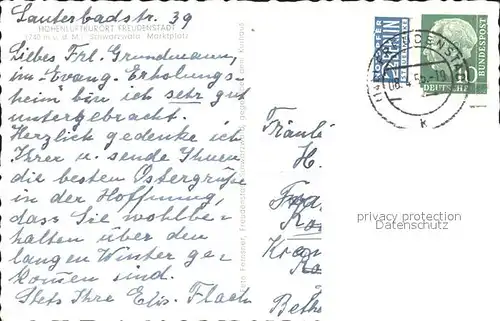 Lauterbadstr. 39
HÖHENLUFTKURORT FREUDENSTADT
(740 m ü. d. M.) Schwarzwald Marktplatz
Liebes Frl. Grundmann,
im Evang. Erholungs-
heim bin ich sehr gut
untergebracht.
Herzlich gedenke ich
Ihrer u. sende Ihnen
die besten Ostergrüße
in der Hoffnung,
dass Sie wohlbe-
halten über den
langen Winter ge-
kommen sind.
Stets Ihre Elis. Flach
Foto Freudenstadt-Schwarzwald gegenüber dem Kurhaus
NOTOPFER
2 BERLIN
STEUERMARKE
FREUDENSTA
k
10
DEUTSCHE
BUNDESPOST
Fräul
H.
Beth
privacy protection
Datenschutz